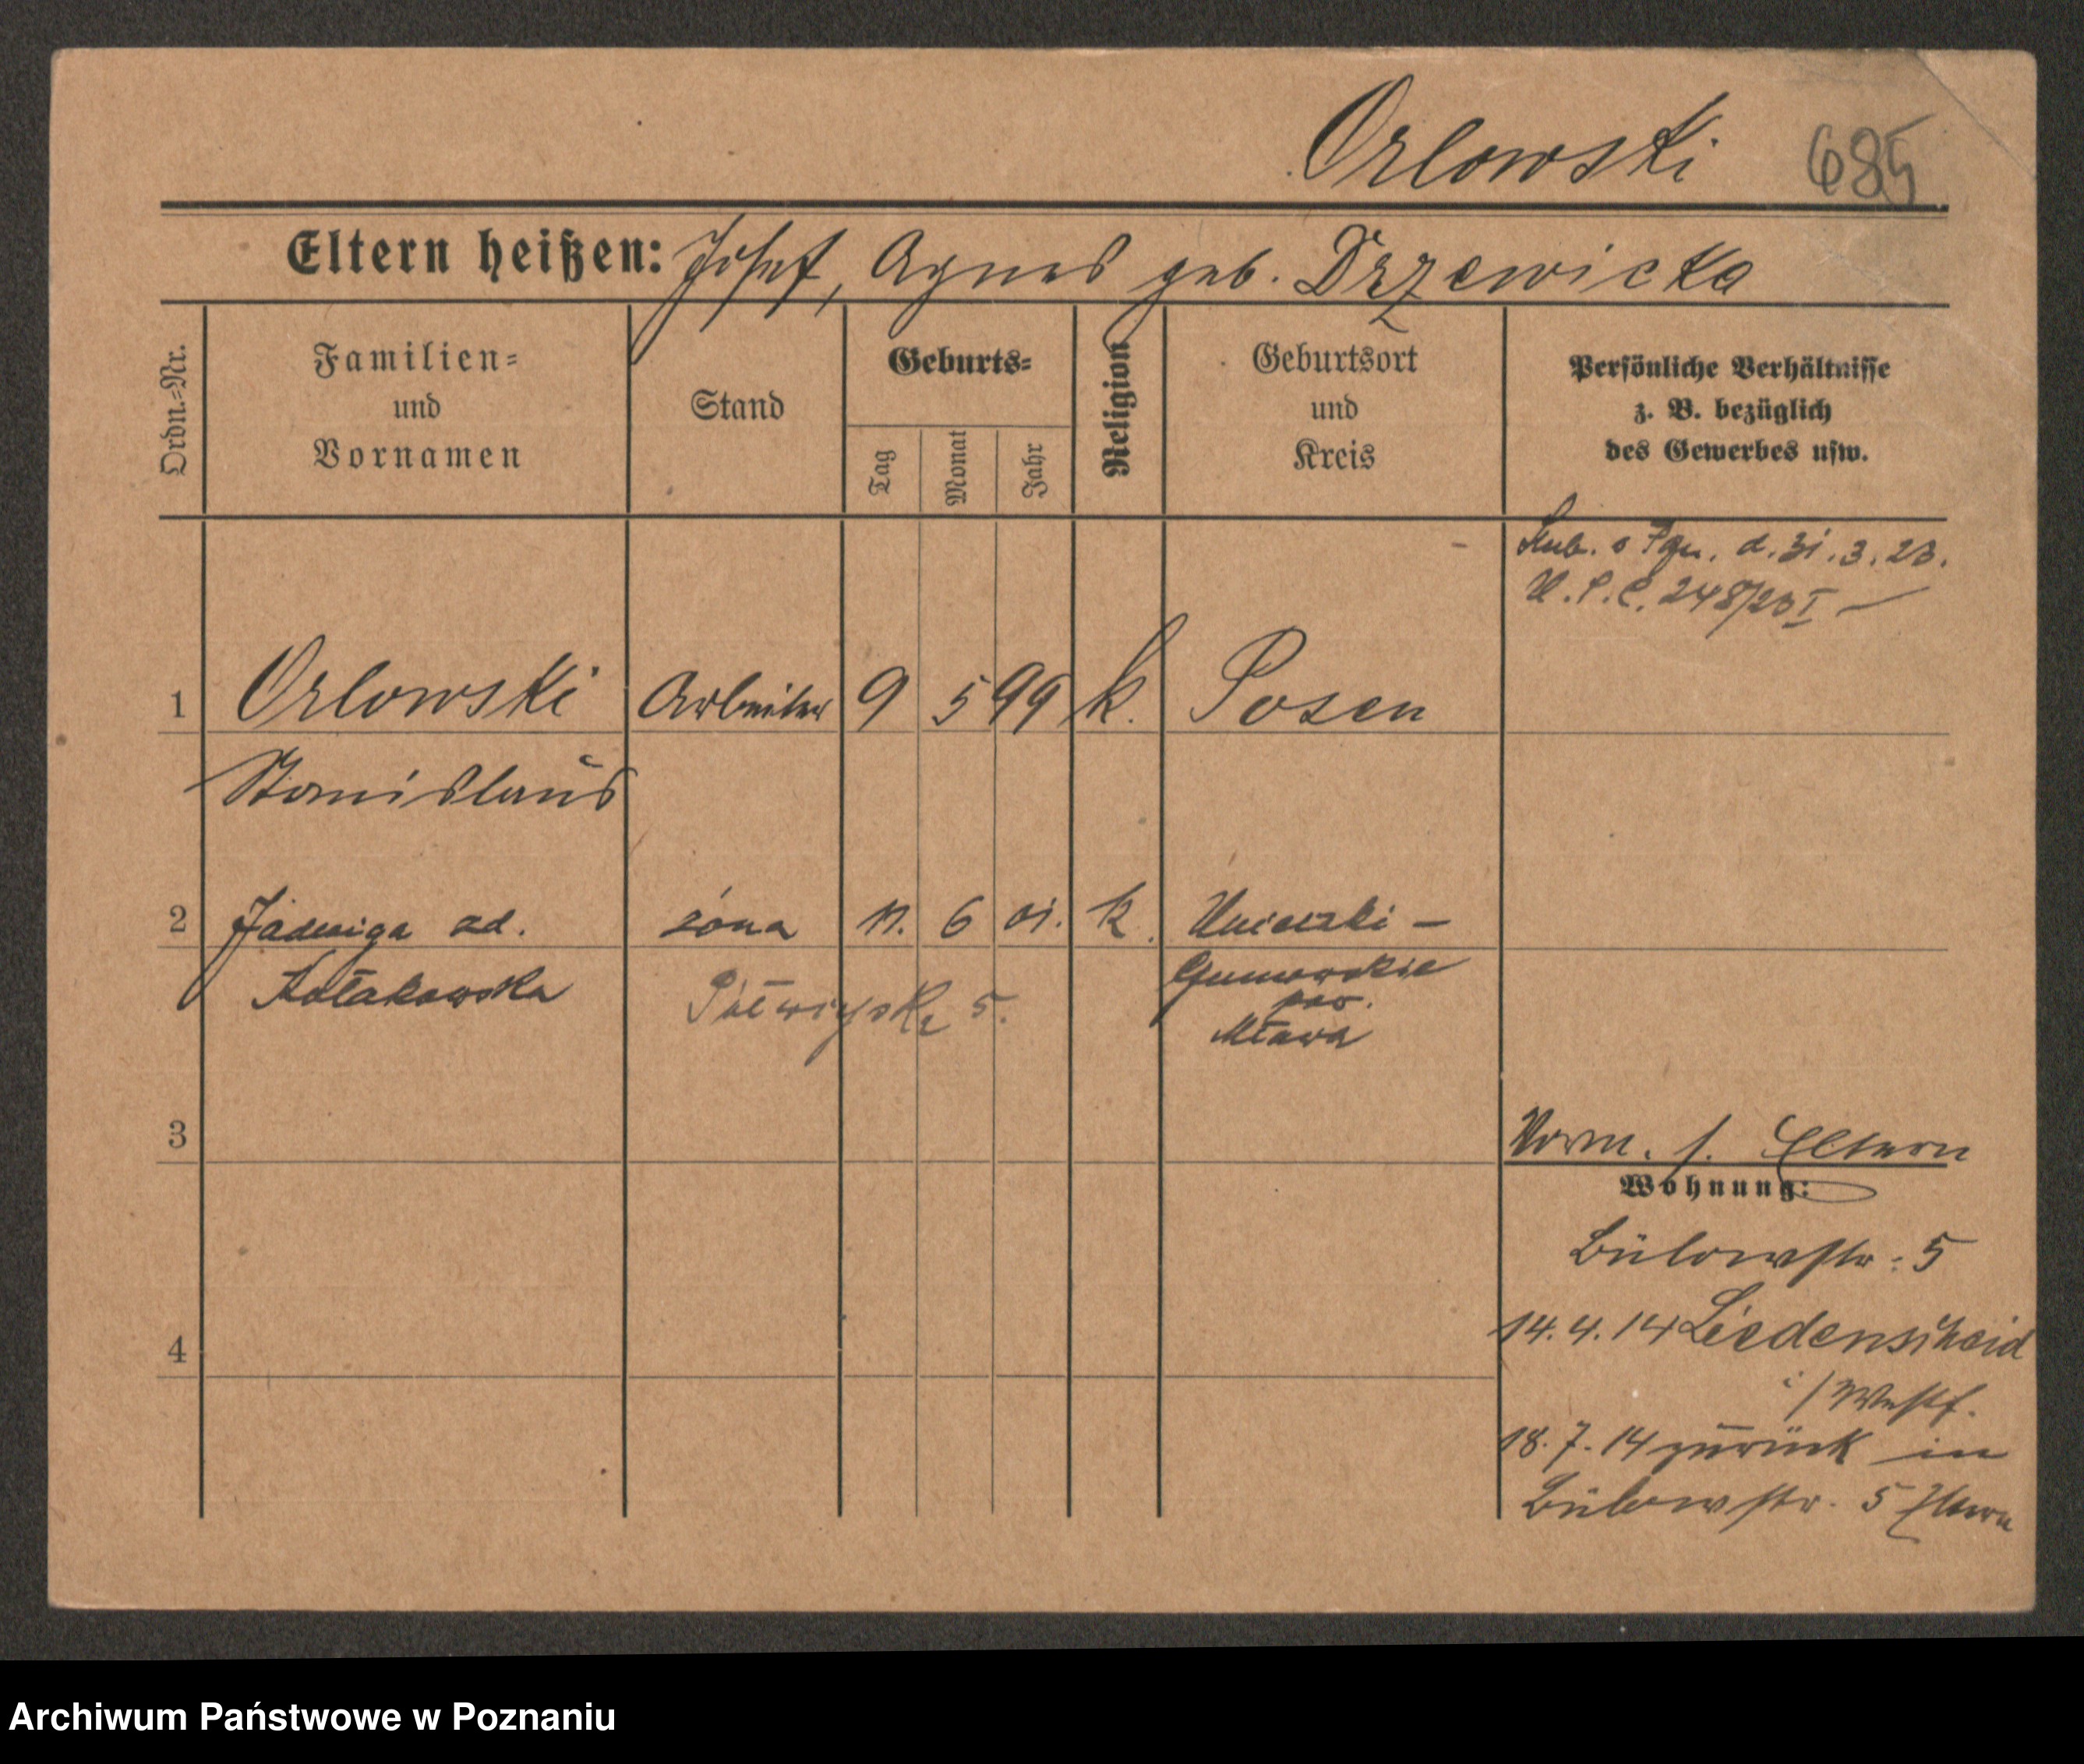 Orlowski 685
Eltern heißen: Josef, Agnes geb. Drzewicka
Ordn.-Nr.
Familien-
und
Vornamen
Stand
Geburts-
Tag
Monat
Jahr
Religion
Geburtsort
und
Kreis
Persönliche Verhältnisse
z. B. bezüglich
des Gewerbes usw.
d. 31.3.23.
248/23 I —
1 Orlowski Arbeiter 9 5 99 k. Posen
Stanislaus
2 Jadwiga zd. żona 11. 6 01. k. Unierzki —
Kołakowska 5. Gumowskie
pow.
Mława
3
Vorm. s. Eltern
Wohnung:
Bülowstr. 5
4
14.4.14 Liedenscheid
i/Westf.
18.7.14 zurück in
Bülowstr. 5 Eltern
Archiwum Państwowe w Poznaniu